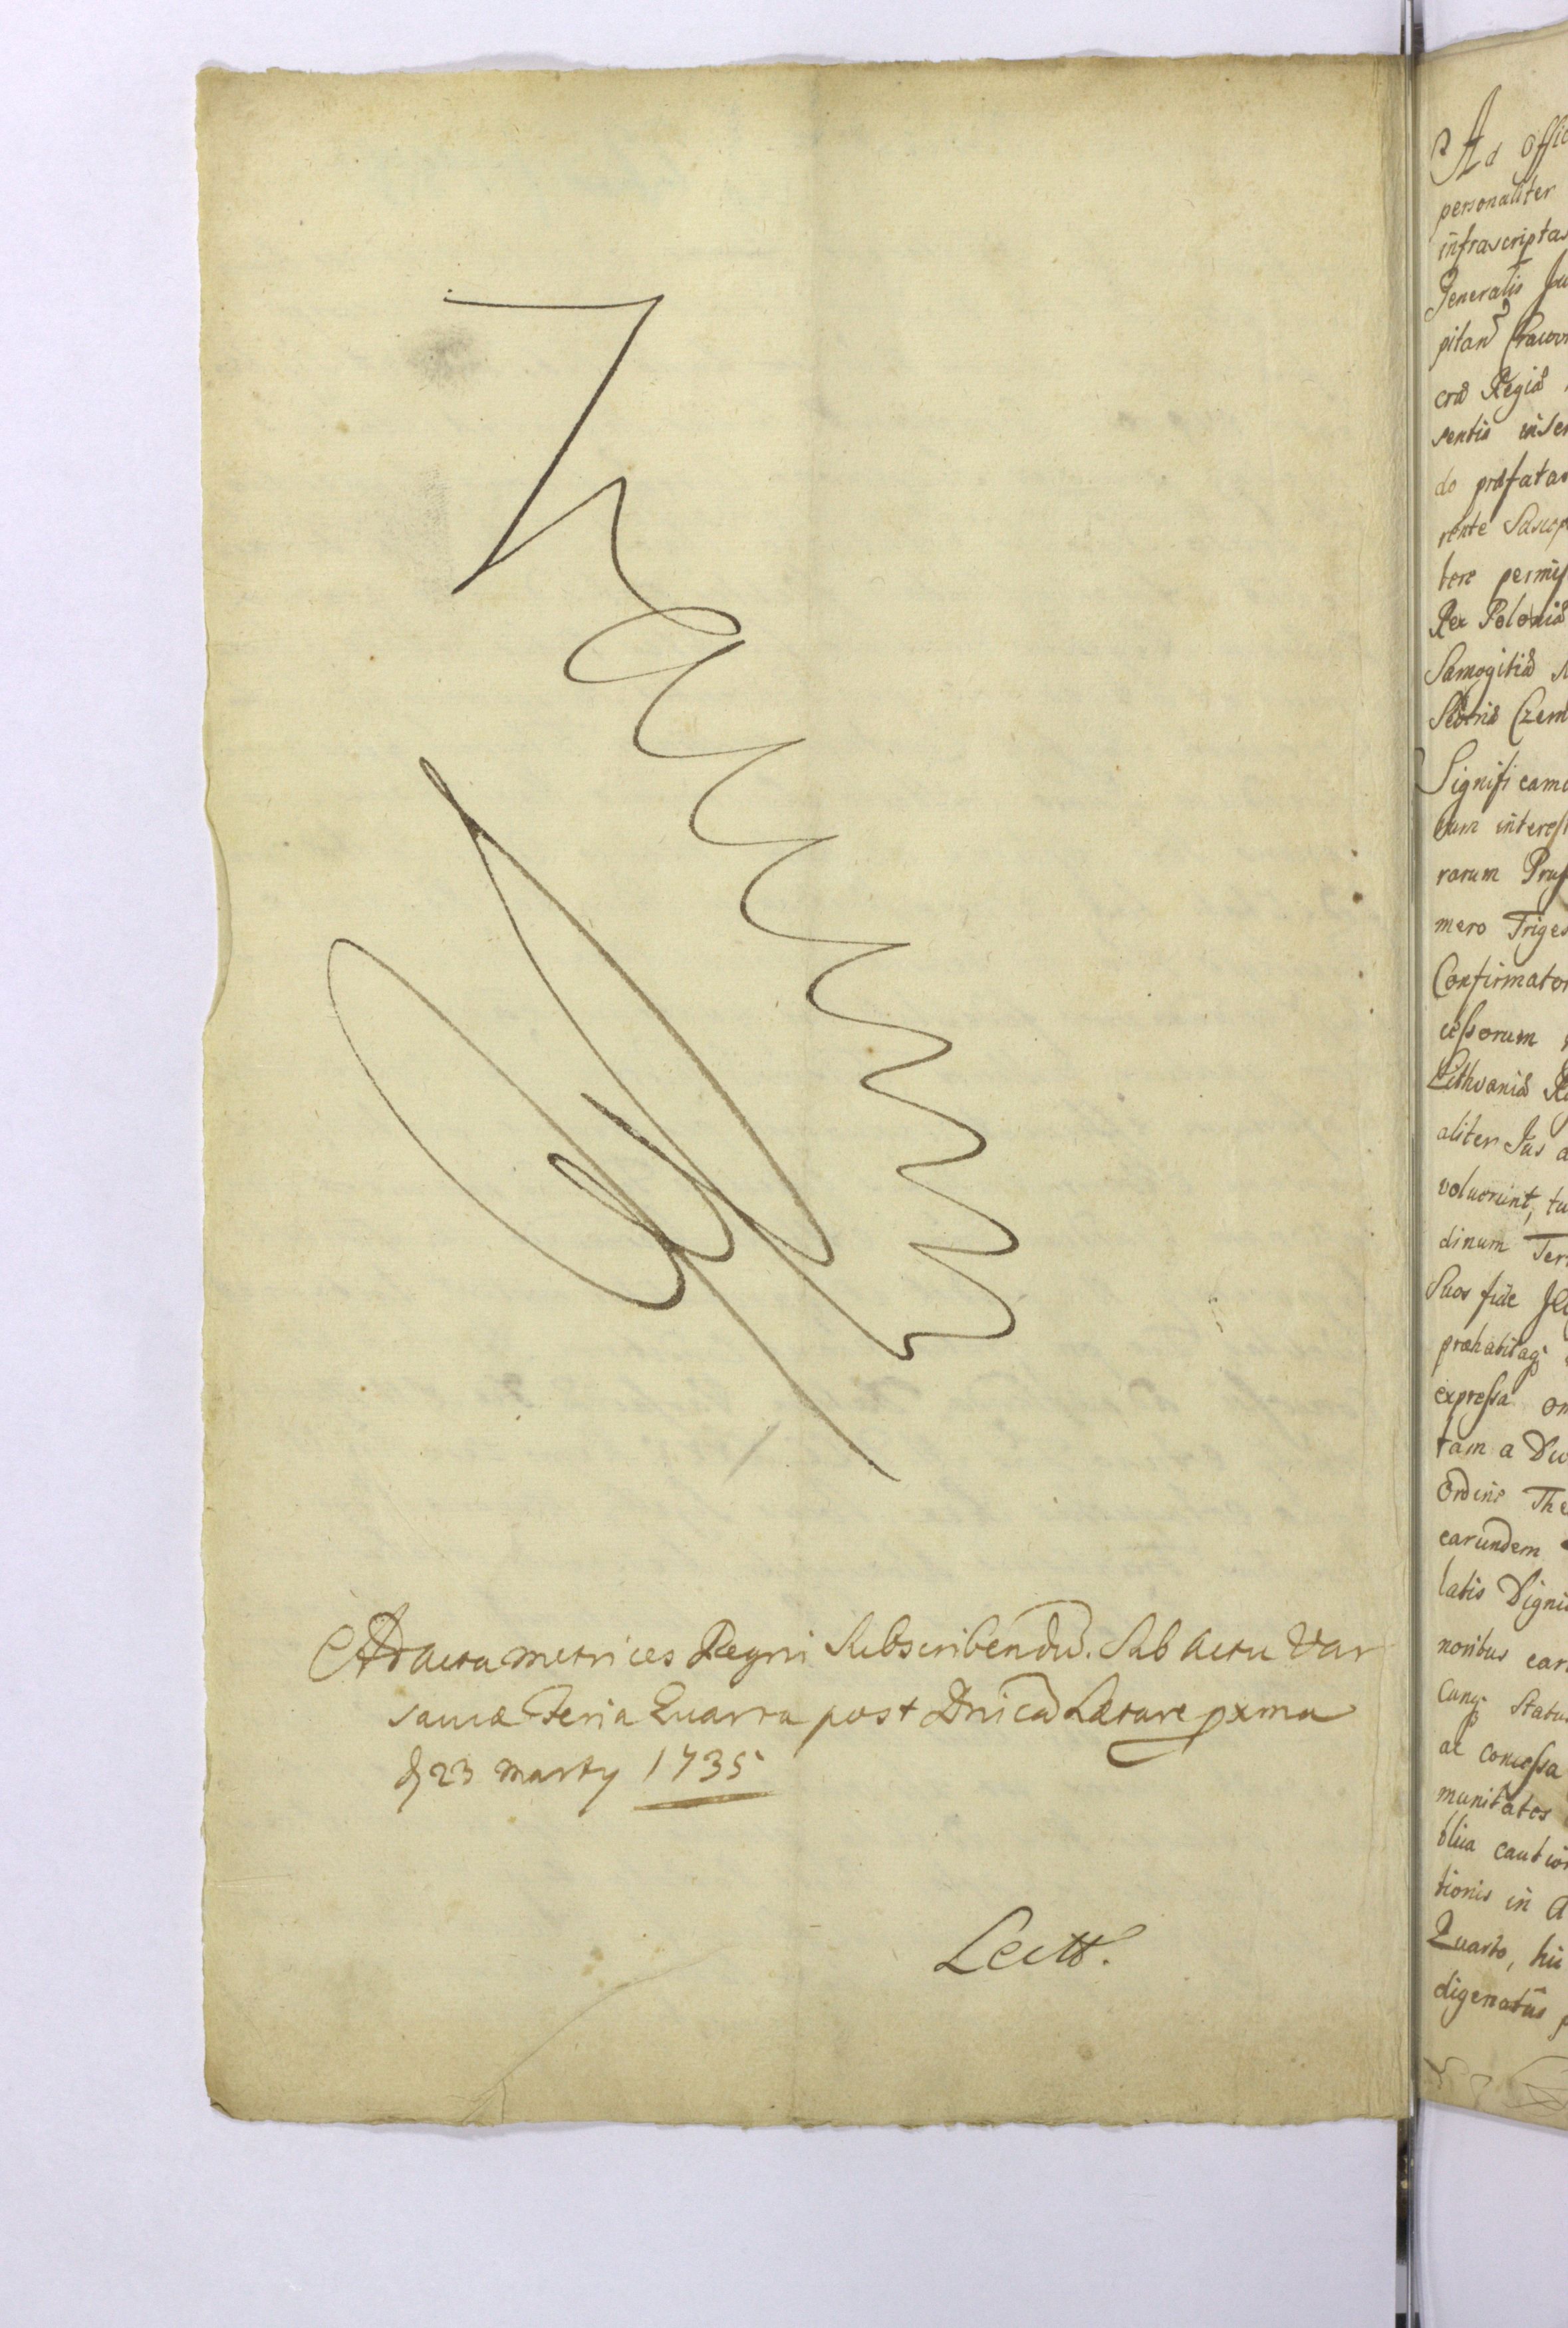 Ad acta metrices Regni Subscribendū. Sub actu Var
saviæ Feria Quarta post Dnicā Lætare pxma
d 23 marty 1735
Lectt.
Ad Offic
personaliter
infrascriptas
Generalis Ju
pitan Cracov
cræ Regiæ
sentis inser
do præfatas
rente Suscep
bere permis
Rex Poloniæ
Samogitiæ
Czern
Significamu
cum interess
rarum Prus
mero Triges
Confirmator
cessorum
Lithvaniæ
aliter Jus a
voluerint, tu
dinum Ter
Suos fide
præhabitaq
expressa om
tam a Du
Ordine The
earundem
latis Digni
noribus ear
cunq Statu
ac concessa
munitates
blica caution
tionis in A
Quarto, hic
digenatus